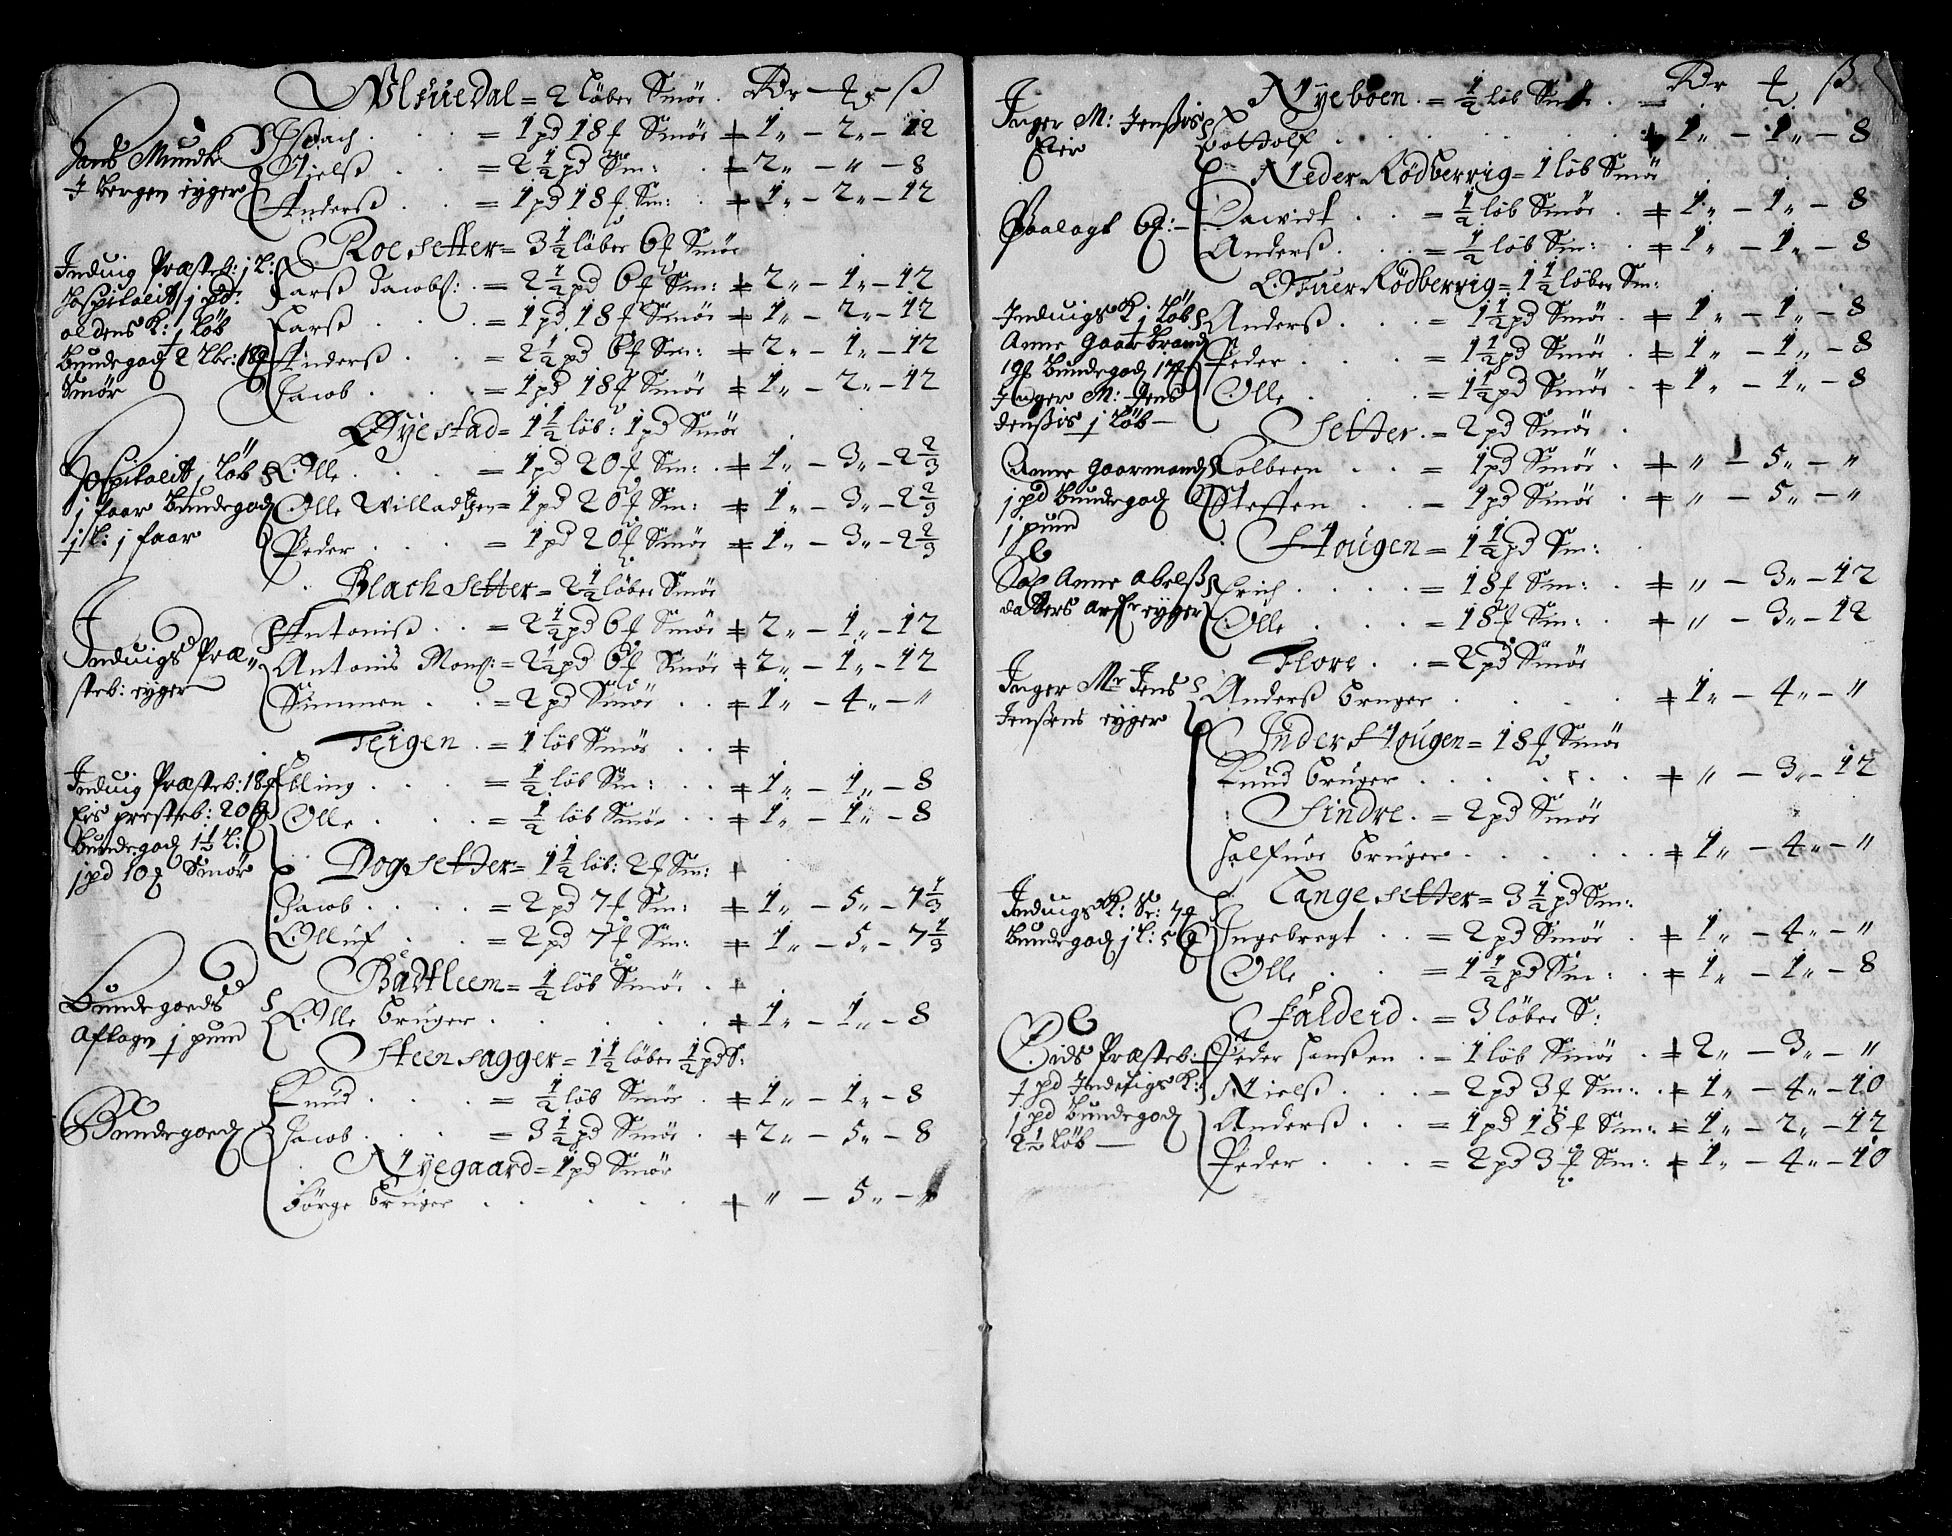 Ulsuedal = 2 löber Smör. Rdr — ₰ — ß
Hans Mundh
J Bergen eyger
Isach . . . = 1 pd 18 f Smör 1 „ – 2 „ – 12
Nielß . . = 2 1/2 pd Sm: 2 „ – „ – 8
Anderß . . = 1 pd 18 f Sm: 1 „ – 2 „ – 12
Roesetter = 3 1/2 löber 6 f Smör
Induig Præsteb: j L:
Hospitalit j pd:
oldens K: j löb
Bundegods 2 Lbr: 18
Smör
Larß Jacobß: = 2 1/2 pd 6 f Sm: 2 „ – 1 „ – 12
Larß . . . = 1 pd 18 f Smör 1 „ – 2 „ – 12
Anderß . . = 2 1/2 pd 6 f Sm: 2 „ – 1 „ – 12
Jacob . . . = 1 pd 18 f Smör 1 „ – 2 „ – 12
Øyestad = 1 1/2 löb: 1 pd Smör
Hospitalit j löb
j faar Bundegods
j L: j faar
Olle . . . = 1 pd 20 f Sm: 1 „ – 3 „ – 2 2/3
Olle Willadtzen = 1 pd 20 f Sm: 1 „ – 3 „ – 2 2/3
Peder . . . = 1 pd 20 f Smör 1 „ – 3 „ – 2 2/3
Blachsetter = 2 1/2 löber Smör
Induigs Præ„
steb: eyger
Antoniß . . = 2 1/2 pd 6 f Smör 2 „ – 1 „ – 12
Antonis Monß: = 2 1/2 pd 6 f Smör 2 „ – 1 „ – 12
Simmen . . = 2 pd Smör . . 1 „ – 4 „ – „
Teigen . = 1 löb Smör . .
Induig Præsteb: 18 f
Eis presteb: 20
Bundegods 1 1/2 L:
j pd 10 f Smör
Elling . . . = 1/2 löb Sm: . . 1 „ – 1 „ – 8
Olle . . . = 1/2 löb Smör . . 1 „ – 1 „ – 8
Dogsetter = 1 1/2 löb: 2 f Sm:
Jacob . . . . = 2 pd 7 f Sm: 1 „ – 5 „ – 7 1/3
Olluf . . . = 2 pd 7 f Sm: 1 „ – 5 „ – 7 1/3
Badtleem = 1/2 löb Smör .
Bundegoeds
Aflagn j pund
Olle bruger . . . . . . 1 „ – 1 „ – 8
Steensagger = 1 1/2 löber 1/2 pd S:
Bundegoeds
Knud . . . . = 1/2 löb Smör . 1 „ – 1 „ – 8
Jacob . . . = 3 1/2 pd Smör . 2 „ – 5 „ – 8
Nyegaard = 1 pd Smör
Börge bruger . . . . . „ – 5 „ – „
Nyeboen . = 1/2 löb Smör . Rdr ₰ ß
Inger M: Jenßis
Eier
Bottolf . . . . . . . 1 „ – 1 „ – 8
Neder Rödberrig = 1 löb Smör
Paalagt 6 f: –
Dawidt . . = 1/2 löb Smör . 1 „ – 1 „ – 8
Anderß . . . = 1/2 löb Sm: . 1 „ – 1 „ – 8
Ofuer Rödberrig = 1 1/2 löber Sm:
Induigs K: j löb
Anne Gaarbrand
19 f Bundegods 17 f
Inger M: Jens
Jenßis j löb —
Anderß . . . = 1 1/2 pd Smör . 1 „ – 1 „ – 8
Peder . . . = 1 1/2 pd Smör . 1 „ – 1 „ – 8
Olle . . . = 1 1/2 pd Smör . 1 „ – 1 „ – 8
Setter . = 2 pd Smör .
Anne Gaarmands
j pd Bundegods
j pund
Kolbeen . . = 1 pd Smör . „ – 5 „ – „
Steffen . . = 1 pd Smör . „ – 5 „ – „
Hougen = 1 1/2 pd Sm:
Sal Anne Abelß
daters arf: eyger
Erich . . . . = 18 f Sm: . „ – 3 „ – 12
Olle . . . = 18 f Sm: . „ – 3 „ – 12
Flore . . = 2 pd Smör
Inger Mr Jens
Jenßens eyger
Anderß bruger . . . . 1 „ – 4 „ – „
Inder Hougen = 18 f Smör
Knud bruger . . . . . . „ – 3 „ – 12
Findre . = 2 pd Smör
Halfuor bruger . . . . . . 1 „ – 4 „ – „
Langesetter = 3 1/2 pd Sm:
Induigs K: Sr: 7 f
Bundegods j L: 5 f
Ingebregt . . = 2 pd Smör . 1 „ – 4 „ – „
Olle . . . = 1 1/2 pd Sm : . 1 „ – 1 „ – 8
Fälderd . = 3 löber S:
Eids Præsteb: –
j pd Induigs K:
j pd Bundegods
2 1/2 löb —
Peder Hanßen . = 1 löb Smör . 2 „ – 3 „ – „
Nielß . . . = 2 pd 3 f Sm: . 1 „ – 4 „ – 10
Anderß . . = 1 pd 18 f Sm: 1 „ – 2 „ – 12
Peder . . . = 2 pd 3 f Sm: 1 „ – 4 „ – 10